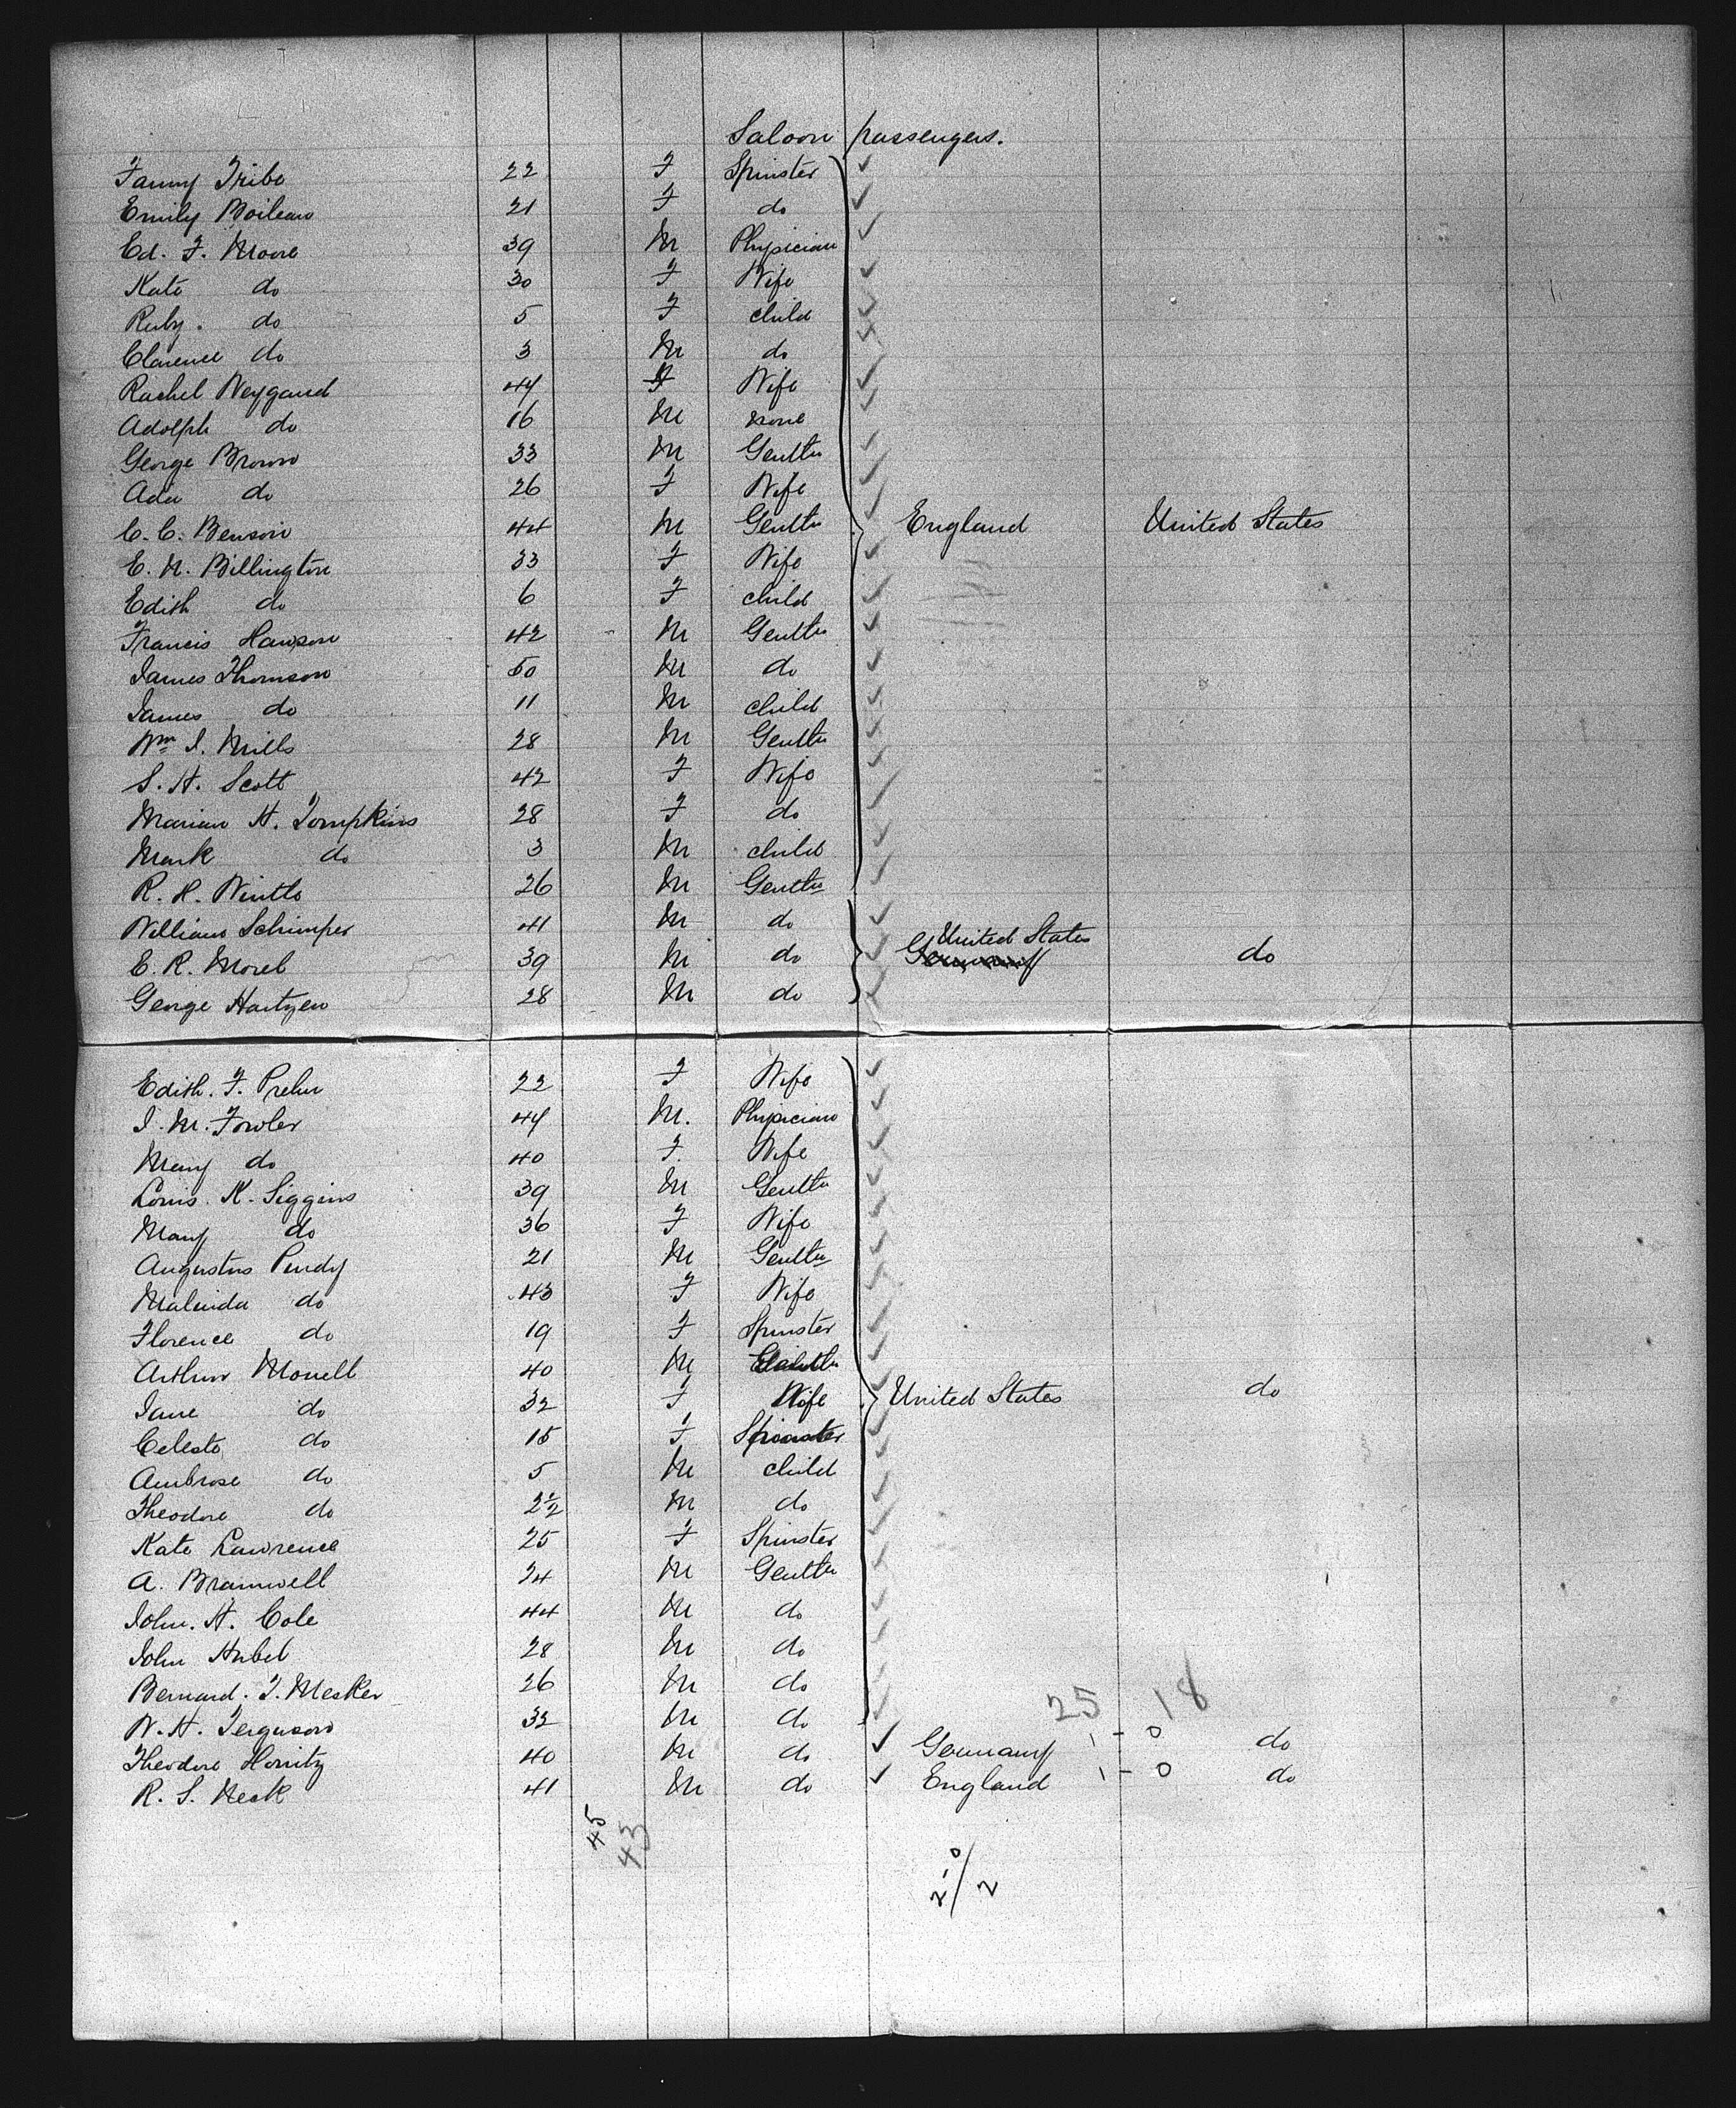 Saloon passengers.
Fanny Tribe 22 F Spinster
Emily Boileau 21 F do
Ed. F. Moore 39 M Physician
Kate do 30 F Wife
Ruby. do 5 F child
Clarence do 3 M do
Rachel Weygand 44 F Wife
Adolph do 16 M none
George Brown 33 M Gentln
Ada do 26 F Wife
C. C. Benson 44 M Gentln England United States
E. M. Billington 33 F Wife
Edith do 6 F child
Francis Hawson 42 M Gentln
James Thomson 50 M do
James do 11 M child
Wm J. Mills 28 M Gentln
S. H. Scott 42 F Wife
Marian H. Tompkins 28 F do
Mark do 3 M child
R. H. Wintle 26 M Gentln
William Schimper 41 M do
E. R. Morel 39 M do United States Germany do
George Hartzen 28 M do
Edith. F. 22 F Wife
J. M. Fowler 44 M. Physician
Mary do 40 F. Wife
Louis. K. Siggins 39 M Gentln
Mary do 36 F Wife
Augustus Purdy 21 M Gentln
Malinda do 43 F Wife
Florence do 19 F Spinster
Arthur Monell 40 M Gentln
Jane do 32 F Wife United States do
Celeste do 15 F Spinster
Ambrose do 5 M child
Theodore do 2½ M do
Kate Lawrence 25 F Spinster
A. Bramwell 24 M Gentln
John. H. Cole 44 M do
John Hubel 28 M do
Bernard. T. Mesker 26 M do
25 18
W. H. Ferguson 32 M do
Theodore 40 M do Germany 1 - 0 do
R. S. 41 M do England 1 - 0 do
45
43
2-0/2